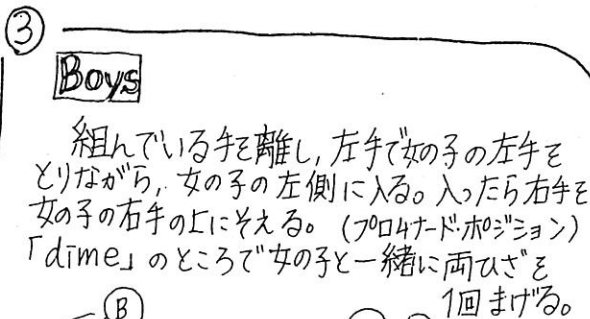 ③
Boys
組んでいる手を離し,左手で女の子の左手を
とりながら,女の子の左側に入る。入ったら右手を
女の子の右手の上にそえる。(プロムナード・ポジション)
「dime」のところで女の子と一緒に両ひざを
1回まげる。
B